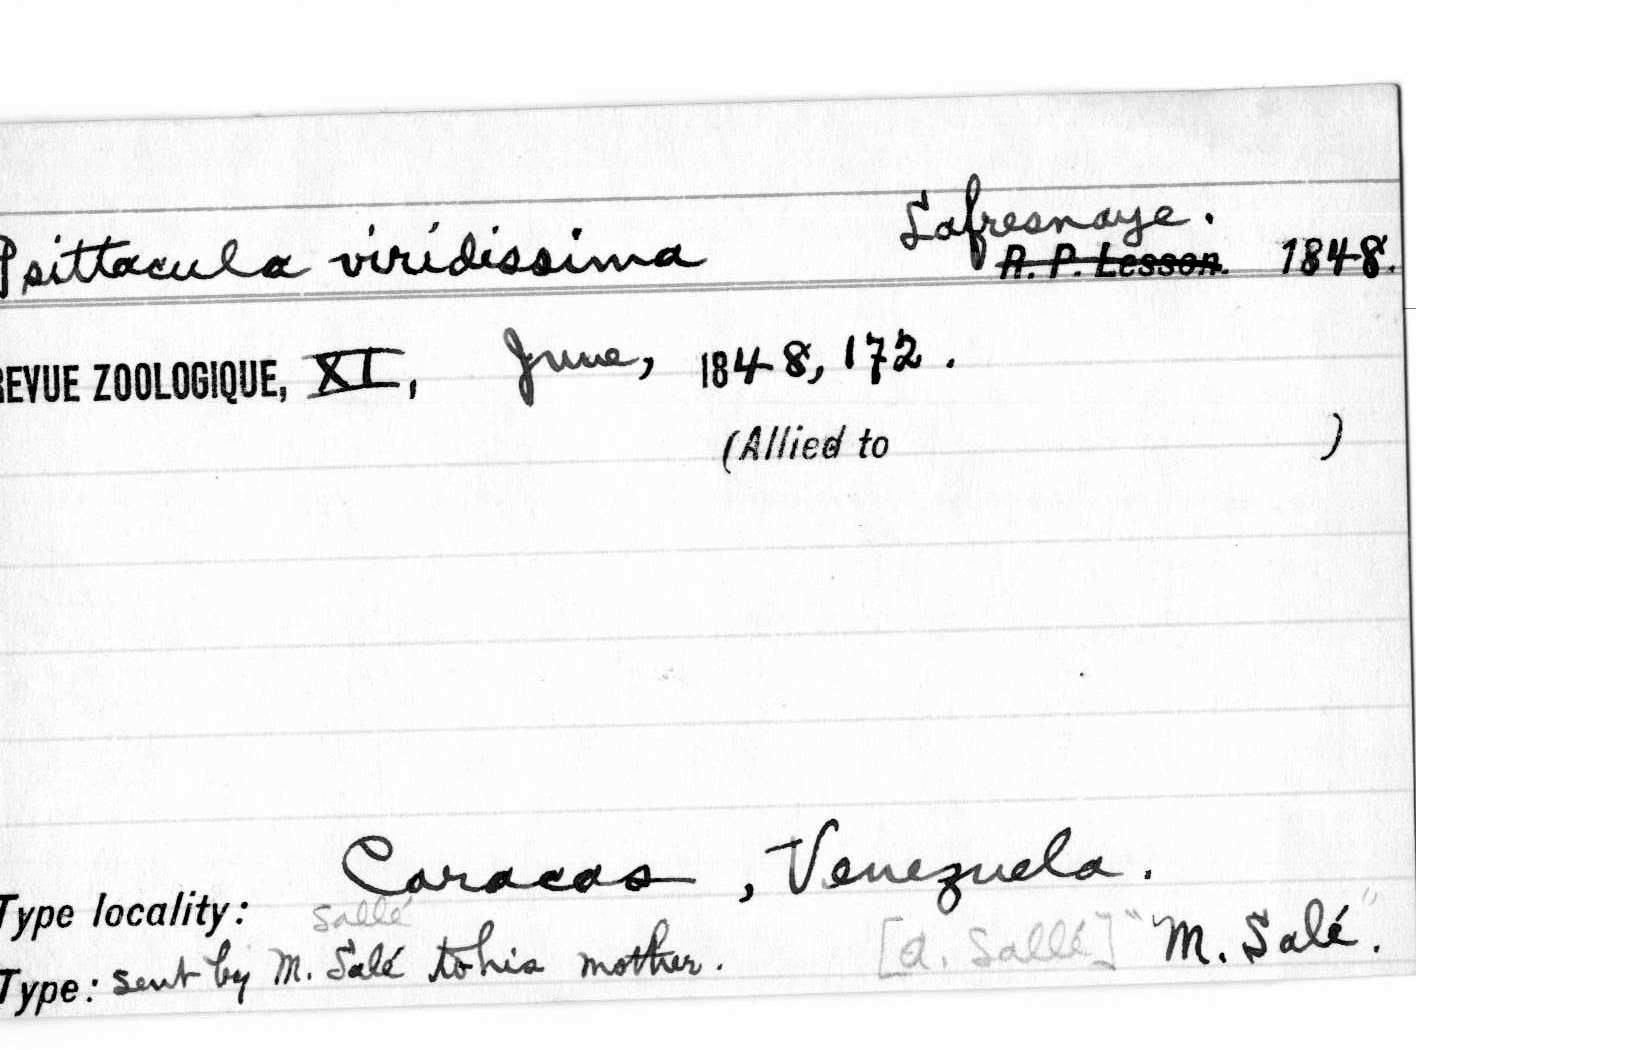 Lafresnaye.
Psittacula viridissima A. P. Lesson. 1848.
REVUE ZOOLOGIQUE, XI, June, 1848, 172.
(Allied to )
Caracas, Venezuela.
Type locality:
Sallé
Type: sent by M. Salé to his mother. [A. Sallé] "M. Salé".